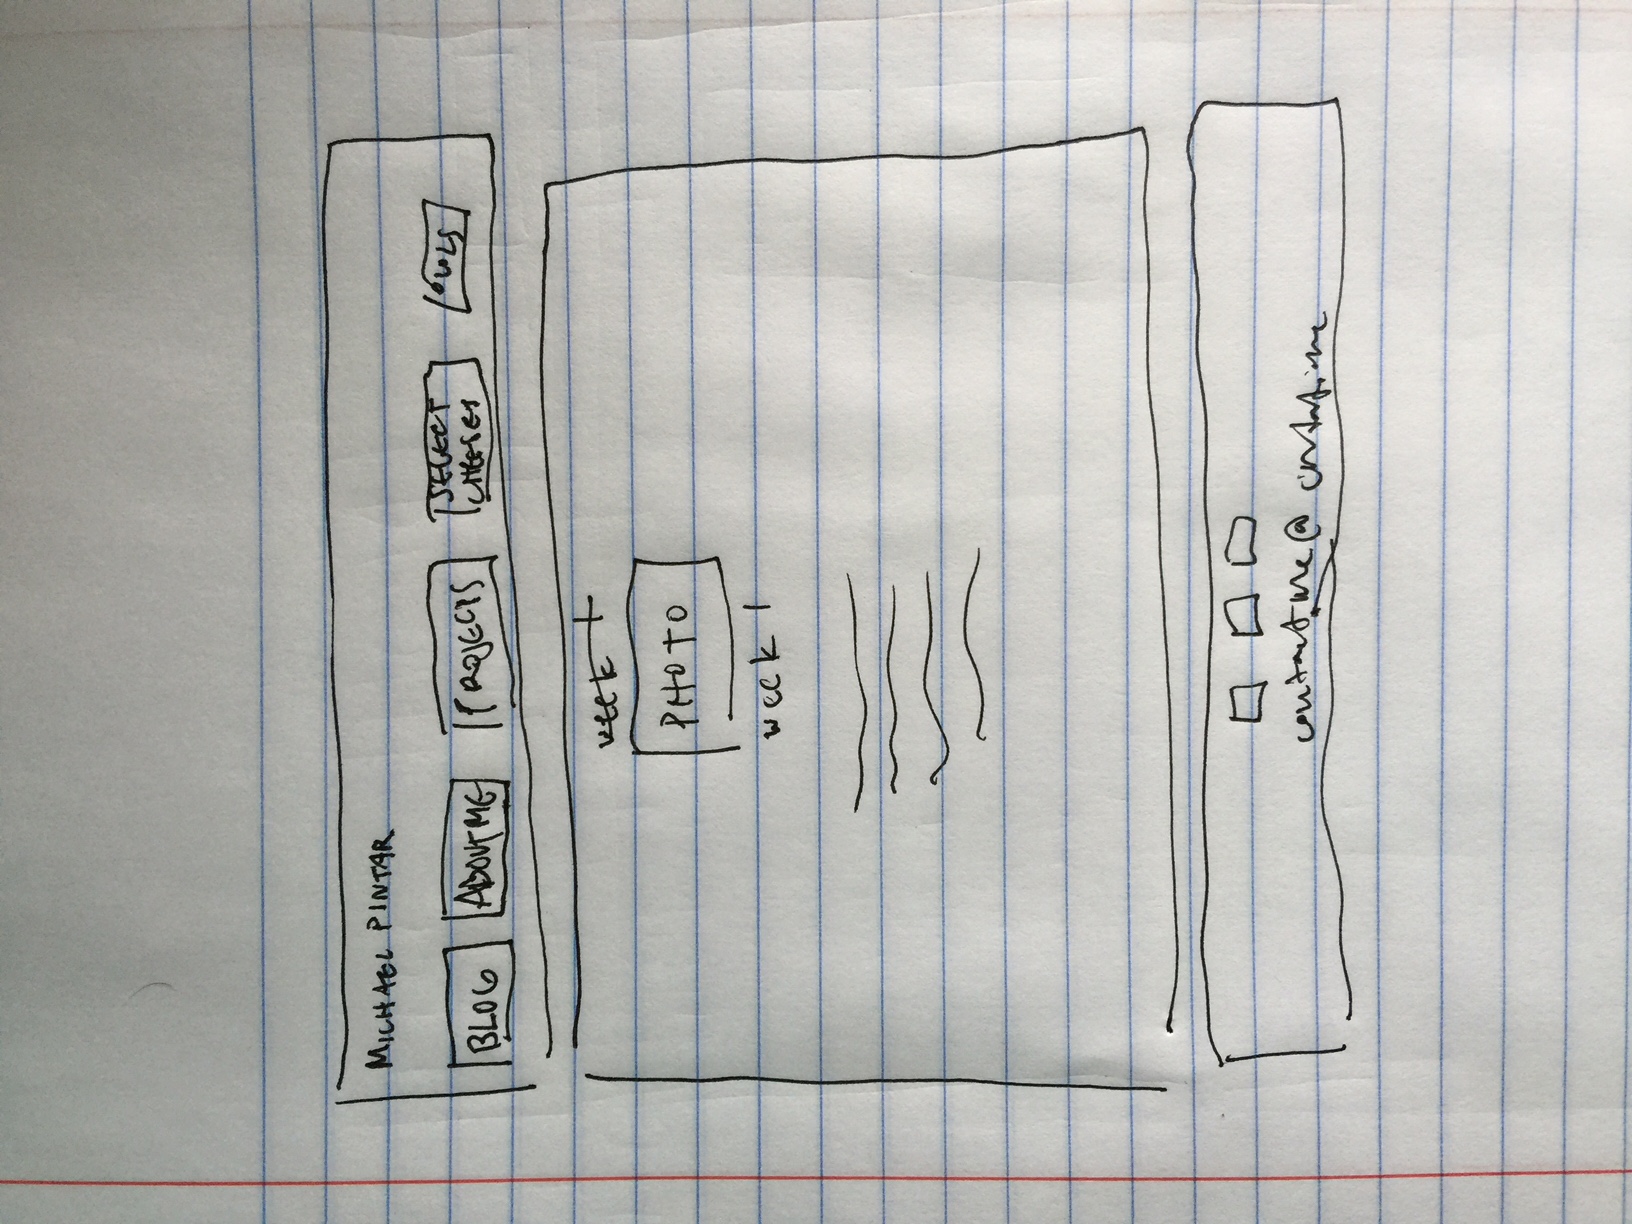 MICHAEL PINTAR
BLOG
ABOUT ME
PROJECTS
SELECT
CHEESES
OWLS
week 1
PHOTO
week 1
contact me @